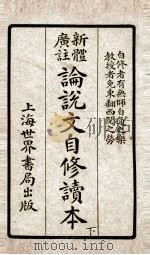 自修者有無師自通之樂
教授者免東翻西閱之勞
新體
廣註
論說文自修讀本
下
上海世界書局出版
www.ertongbook.com